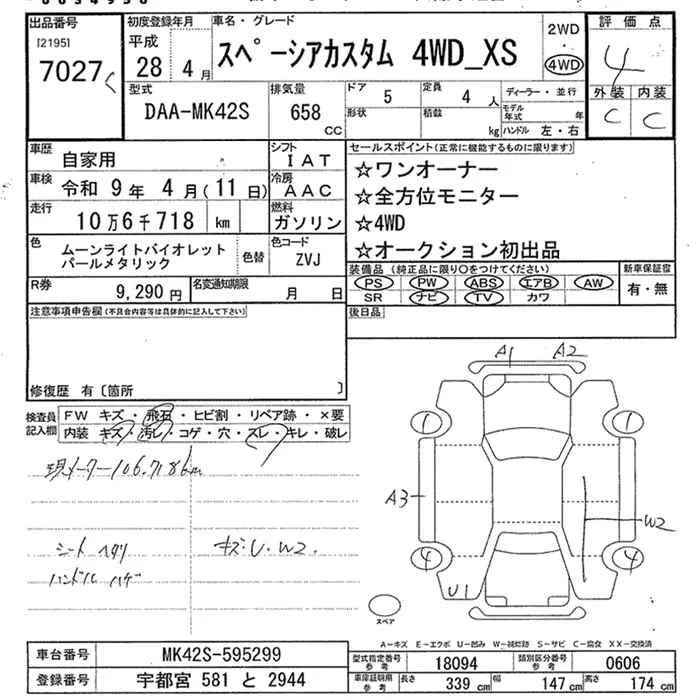 出品番号
I21951
7027
初度登録年月
平成
28 4 月
車名・グレード
スペーシアカスタム 4WD_XS
2WD
4WD
評価点
4
外装 内装
C C
型式
DAA-MK42S
排気量
658
CC
ドア
5
定員
4 人
形状
積数
kg
ディーラー・並行
モデル年式 年
ハンドル 左・右
車歴
自家用
シフト
IAT
車検
令和 9年 4月(11日)
冷房
AAC
走行
10万6千718 km
燃料
ガソリン
色
ムーンライトバイオレット
パールメタリック
色替
色コード
ZVJ
R券
9,290円
名変通知期限
月 日
セールスポイント(正常に機能するものに限ります)
☆ワンオーナー
☆全方位モニター
☆4WD
☆オークション初出品
装備品(純正品に限り○をつけてください)
PS PW ABS エアB AW
SR ナビ TV カワ
新車保証書
有・無
後日品
注意事項申告欄(不具合内容等は具体的に記入して下さい)
修復歴 有〔箇所 〕
検査員記入欄
FW キズ・飛石・ヒビ割・リペア跡・×要
内装 キズ・汚レ・コゲ・穴・スレ・キレ・破レ
現メーター106,7186m
シート ヘタリ
キズ・U・W2.
ハンドル ハゲ
A1 A2
1 1
A3
W2
4 4
U1
スペア
A-キズ E-エクボ U-凹み W-補修跡 S-サビ C-腐食 XX-交換済
車台番号
MK42S-595299
登録番号
宇都宮 581 と 2944
型式指定番号
参考
18094
類別区分番号
参考
0606
車庫証明用
参考
長さ 339 cm 幅 147 cm 高さ 174 cm